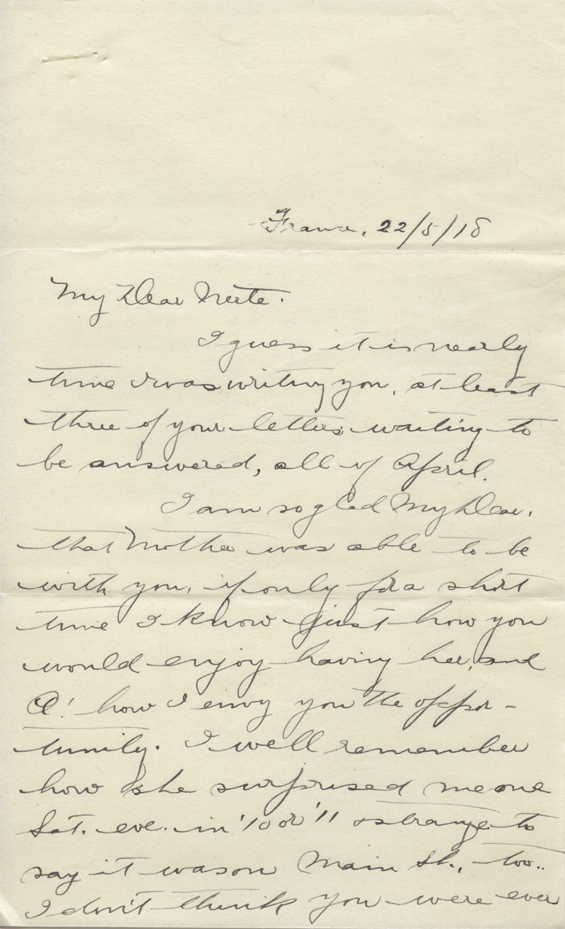 France, 22/5/18
My Dear Nete.
I guess it is nearly
time I was writing you, at least
three of your letters waiting to
be answered, all of April.
I am so glad My Dear,
that Mother was able to be
with you, if only for a short
time I know just how you
would enjoy having her, and
O! how I envy you the oppor-
tunity. I well remember
how she surprised me one
Sat. eve. in '10 or '11 & strange to
say it was on Main St., too..
I don't think you were ever